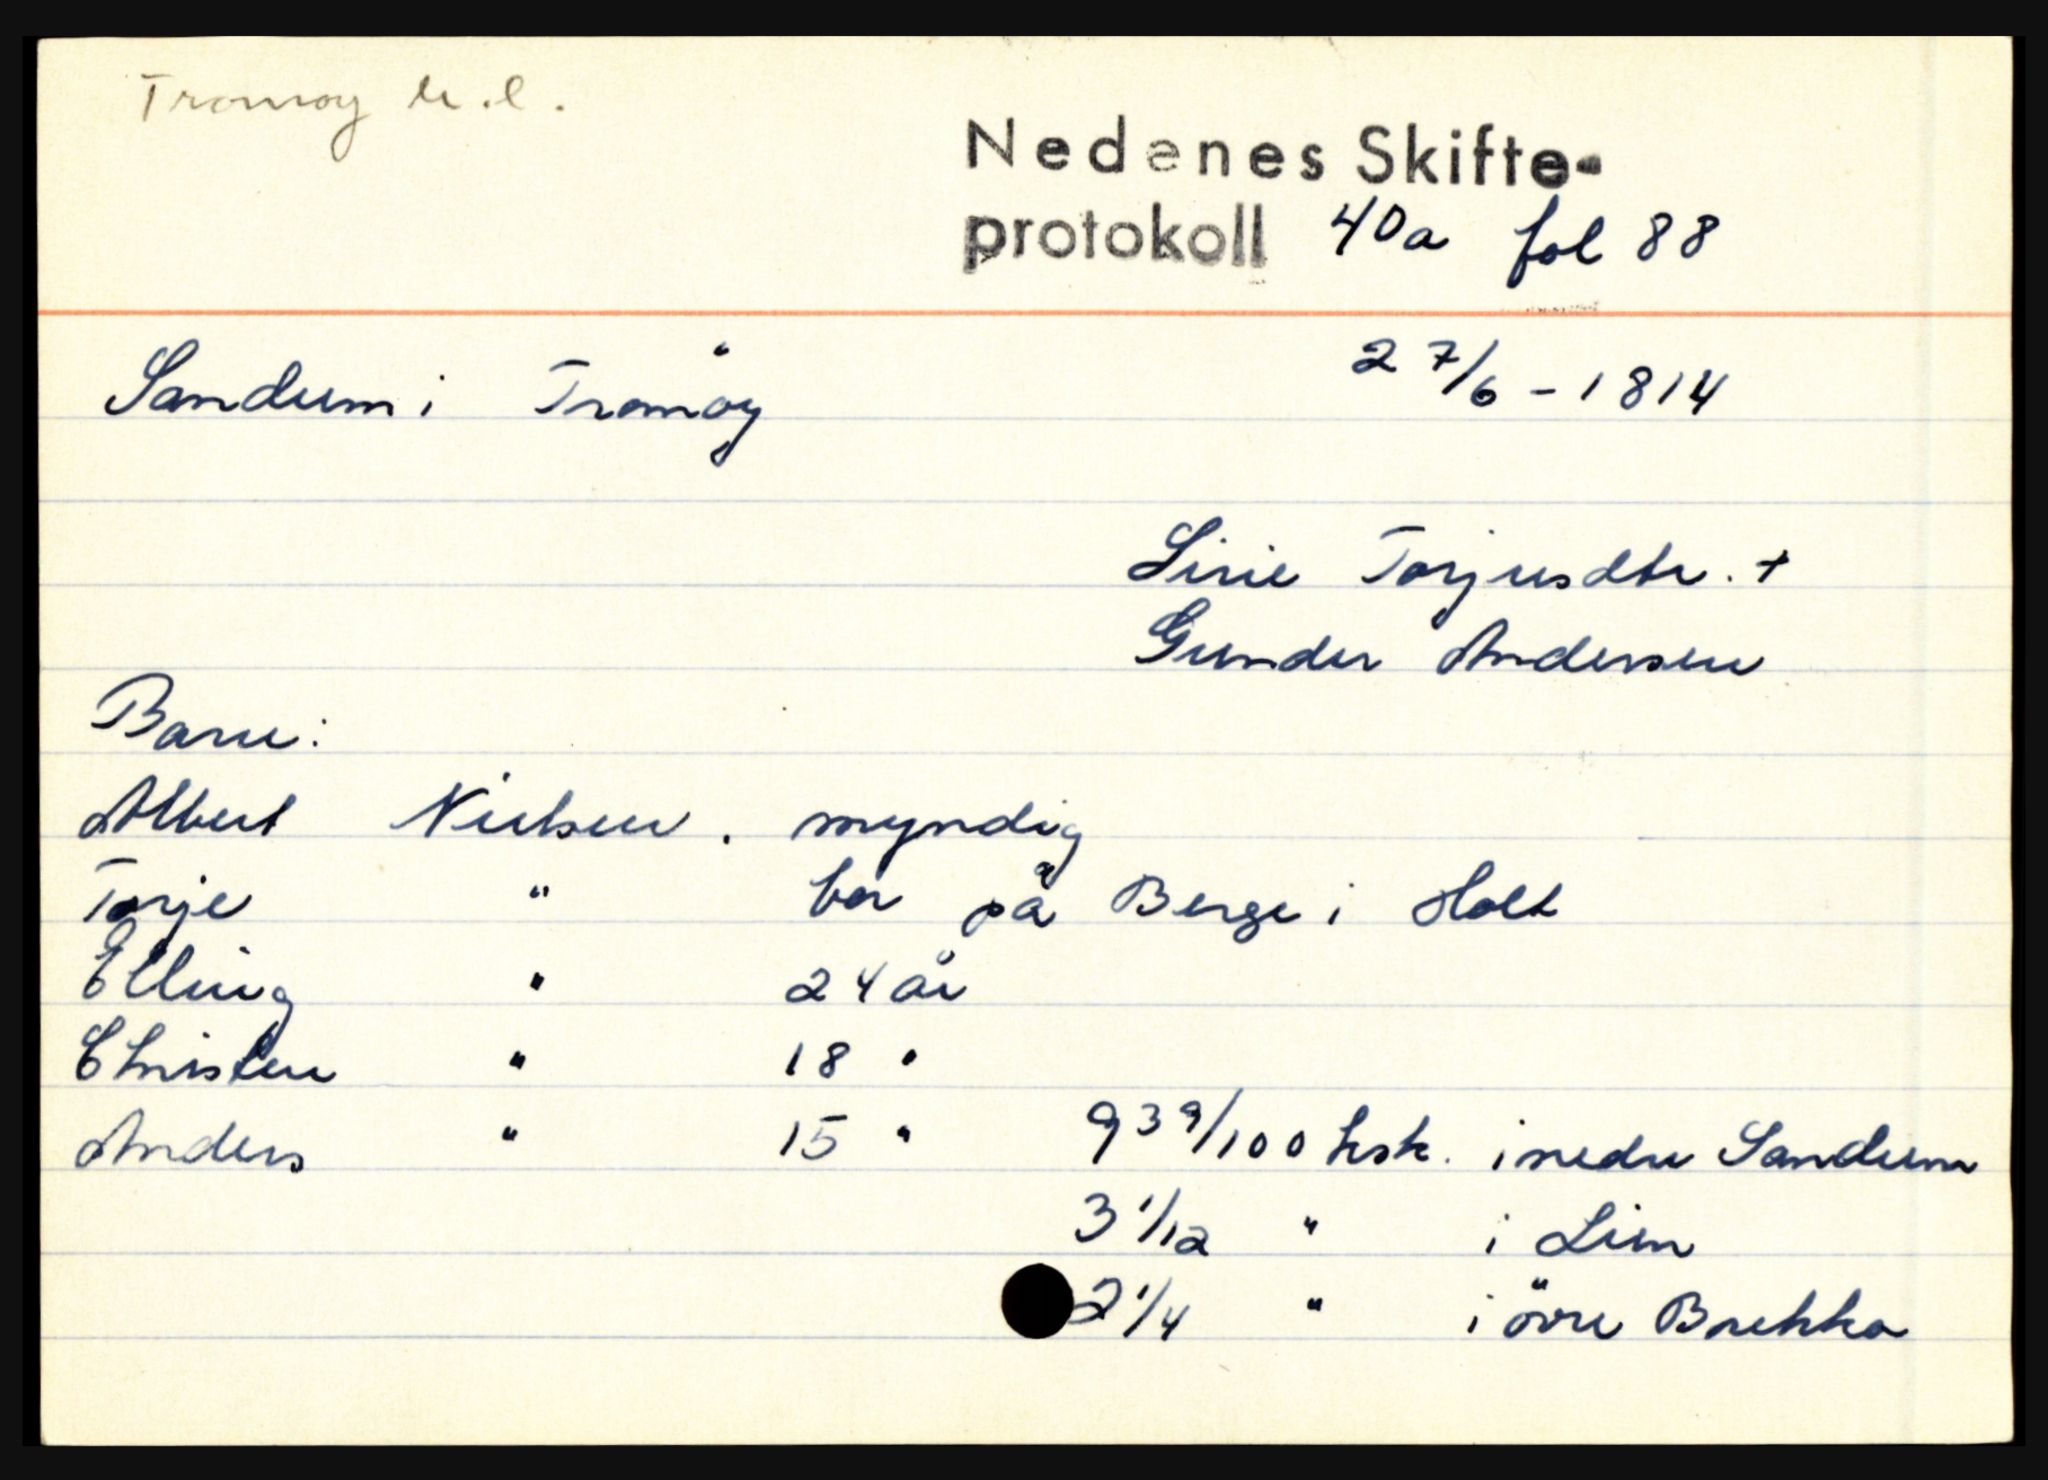 Tromøy k.l.
Nedenes Skifte-
protokoll 40a fol 88
Sandum i Tromöy
27/6 - 1814
Sirie Torjusdtr. +
Gunder Andersen
Barn:
Albert Nielsen. myndig
Torje " bor på Berge i Holt
Elling " 24 år
Christen " 18 "
Anders " 15 " 9 39/100 hsk. i nedre Sandum
3 1/12 " i Lien
2 1/4 " i övre Brekka